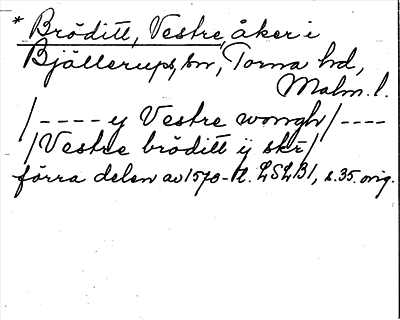 * Bröditt, Vestre, åker i
Bjällerups, sn, Torna hd,
Malm. l.
/---- y Vestre wongh/----
/Vestre bröditt ij skr/
förra delen av 1570-t. LSLB1, s. 35. orig.